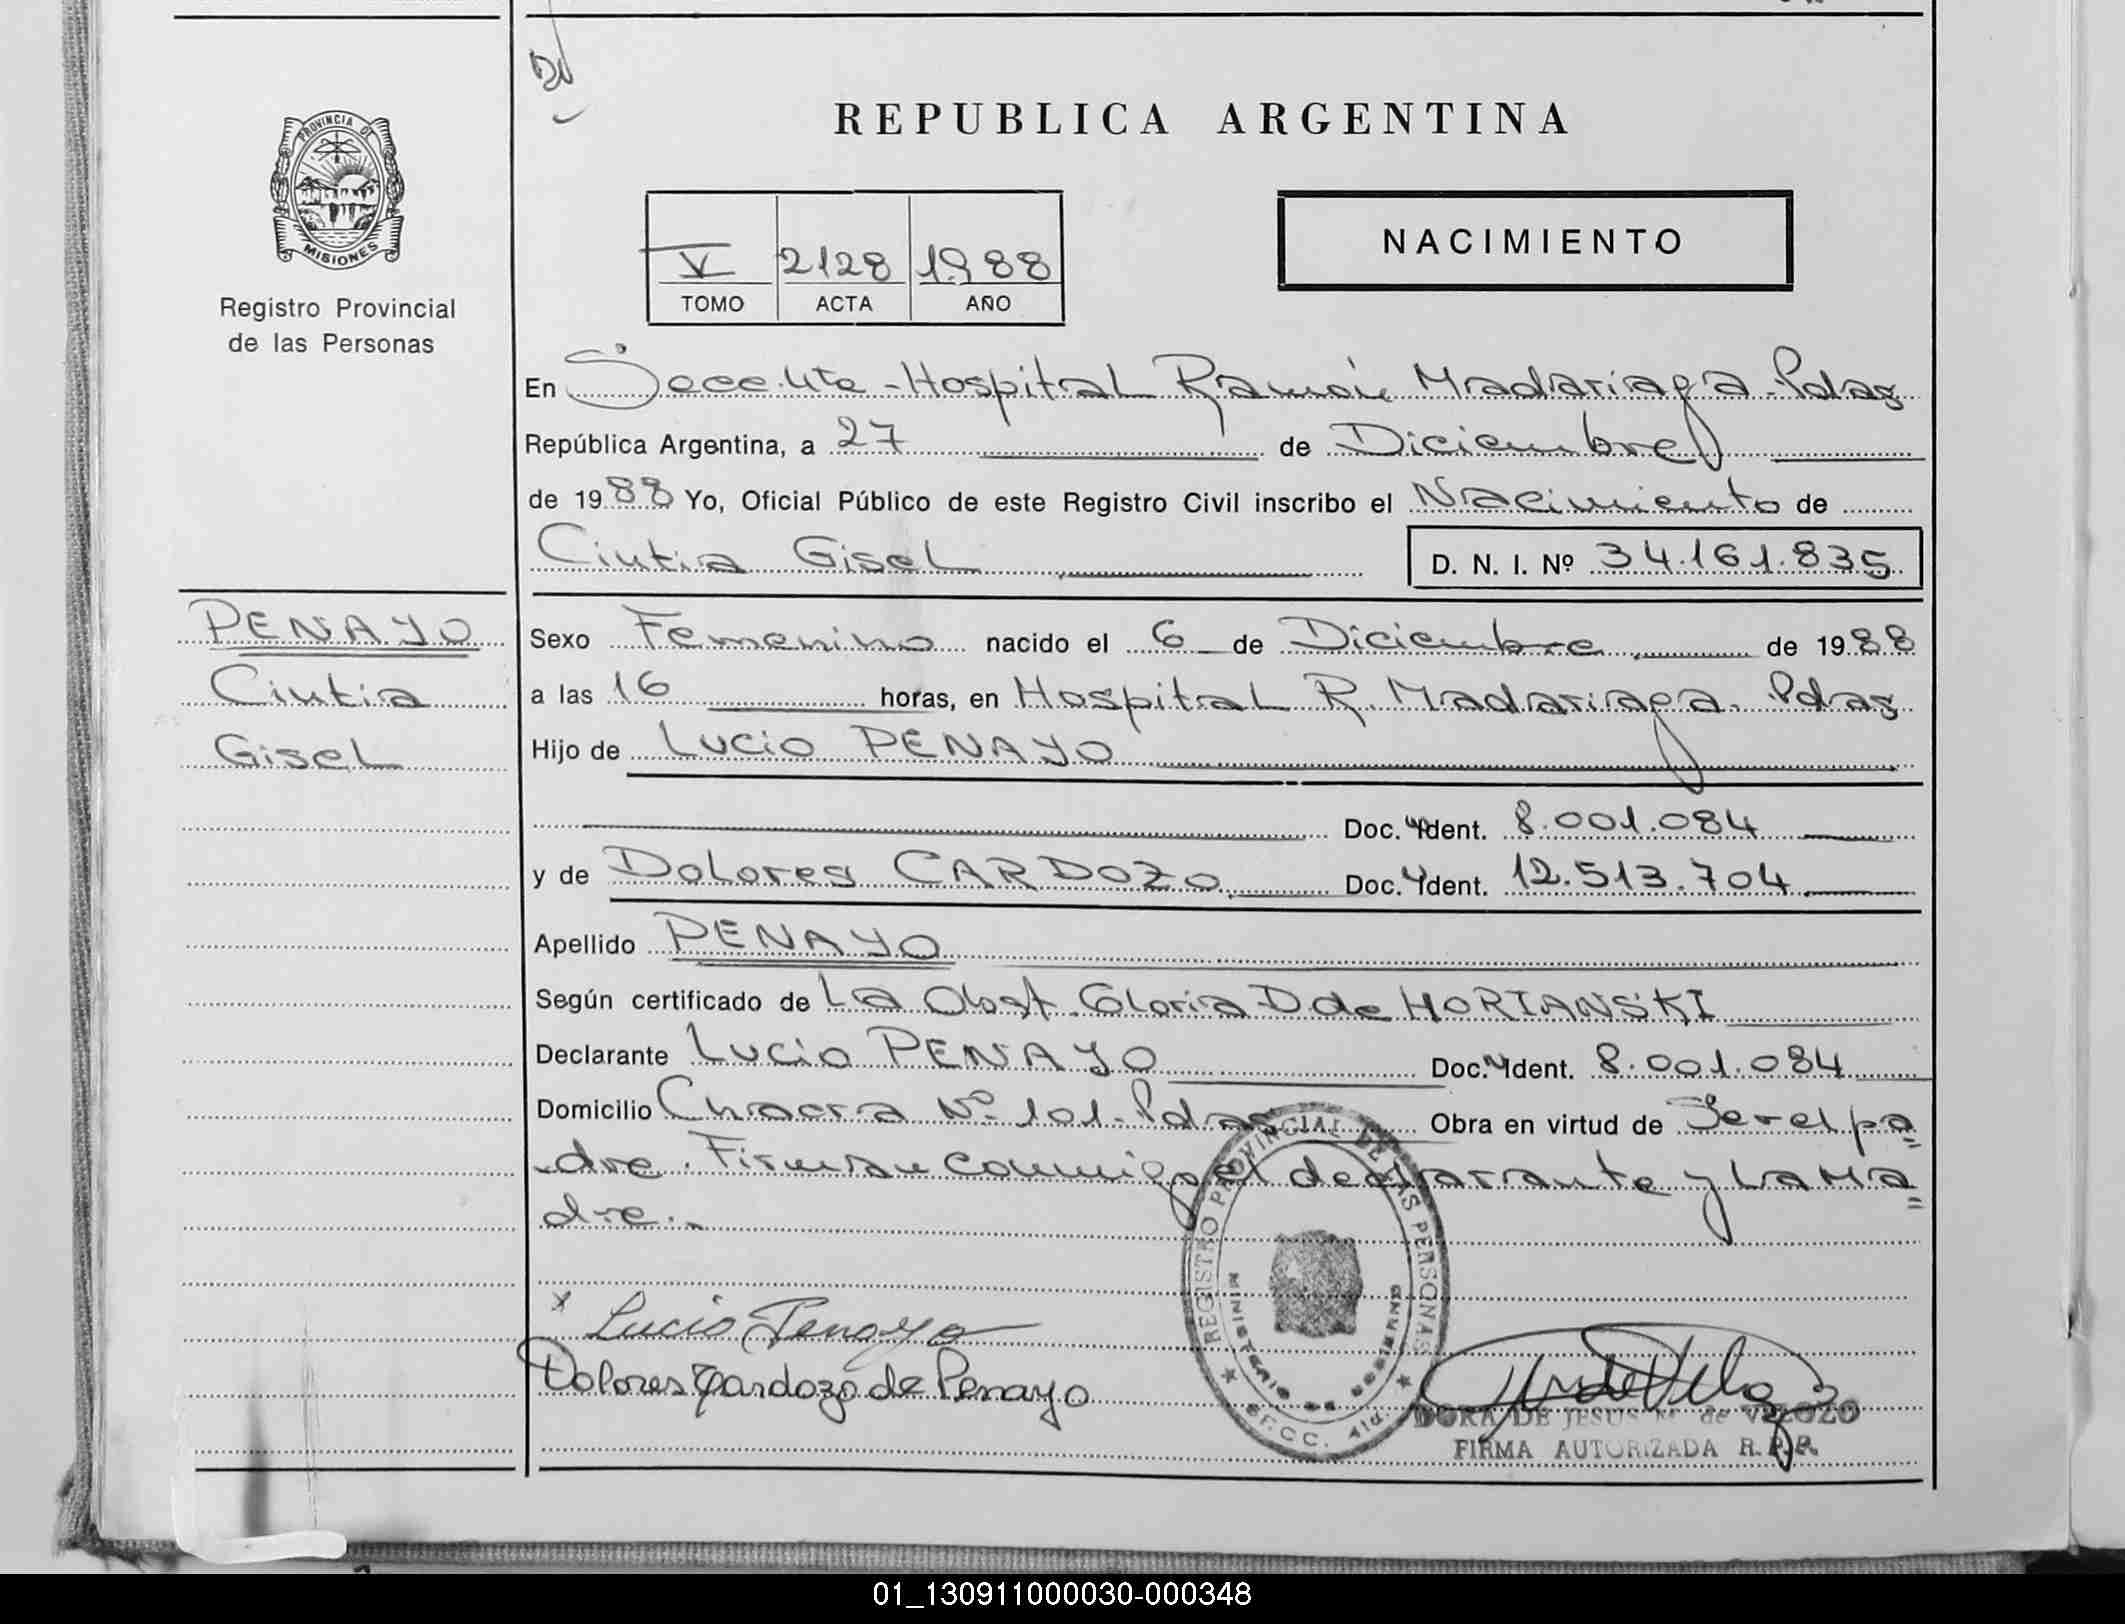 REPUBLICA ARGENTINA
PROVINCIA DE
MISIONES
Registro Provincial
de las Personas
V 2128 1988
TOMO ACTA AÑO
NACIMIENTO
En Secc. 4ta - Hospital Ramón Madariaga - Pdas
República Argentina, a 27 de Diciembre
de 1988 Yo, Oficial Público de este Registro Civil inscribo el Nacimiento de
Cintia Gisel D. N. I. Nº 34.161.835
PENAYO
Cintia
Gisel
Sexo Femenino nacido el 6 de Diciembre de 1988
a las 16 horas, en Hospital R. Madariaga. Pdas
Hijo de Lucio PENAYO
Doc. Ident. 8.001.084
y de Dolores CARDOZO Doc. Ident. 12.513.704
Apellido PENAYO
Según certificado de La Obst. Gloria D. de HORIANSKI
Declarante Lucio PENAYO Doc. Ident. 8.001.084
Domicilio Chacra Nº 101 - Pdas Obra en virtud de Ser el pa=
dre. Firman conmigo el declarante y La Ma=
dre.-
x Lucio Penayo
Dolores Cardozo de Penayo
REGISTRO PROVINCIAL DE LAS PERSONAS
MINISTERIO DE GOBIERNO
DORA DE JESUS M. de VELOZO
FIRMA AUTORIZADA R.P.P.
01_130911000030-000348